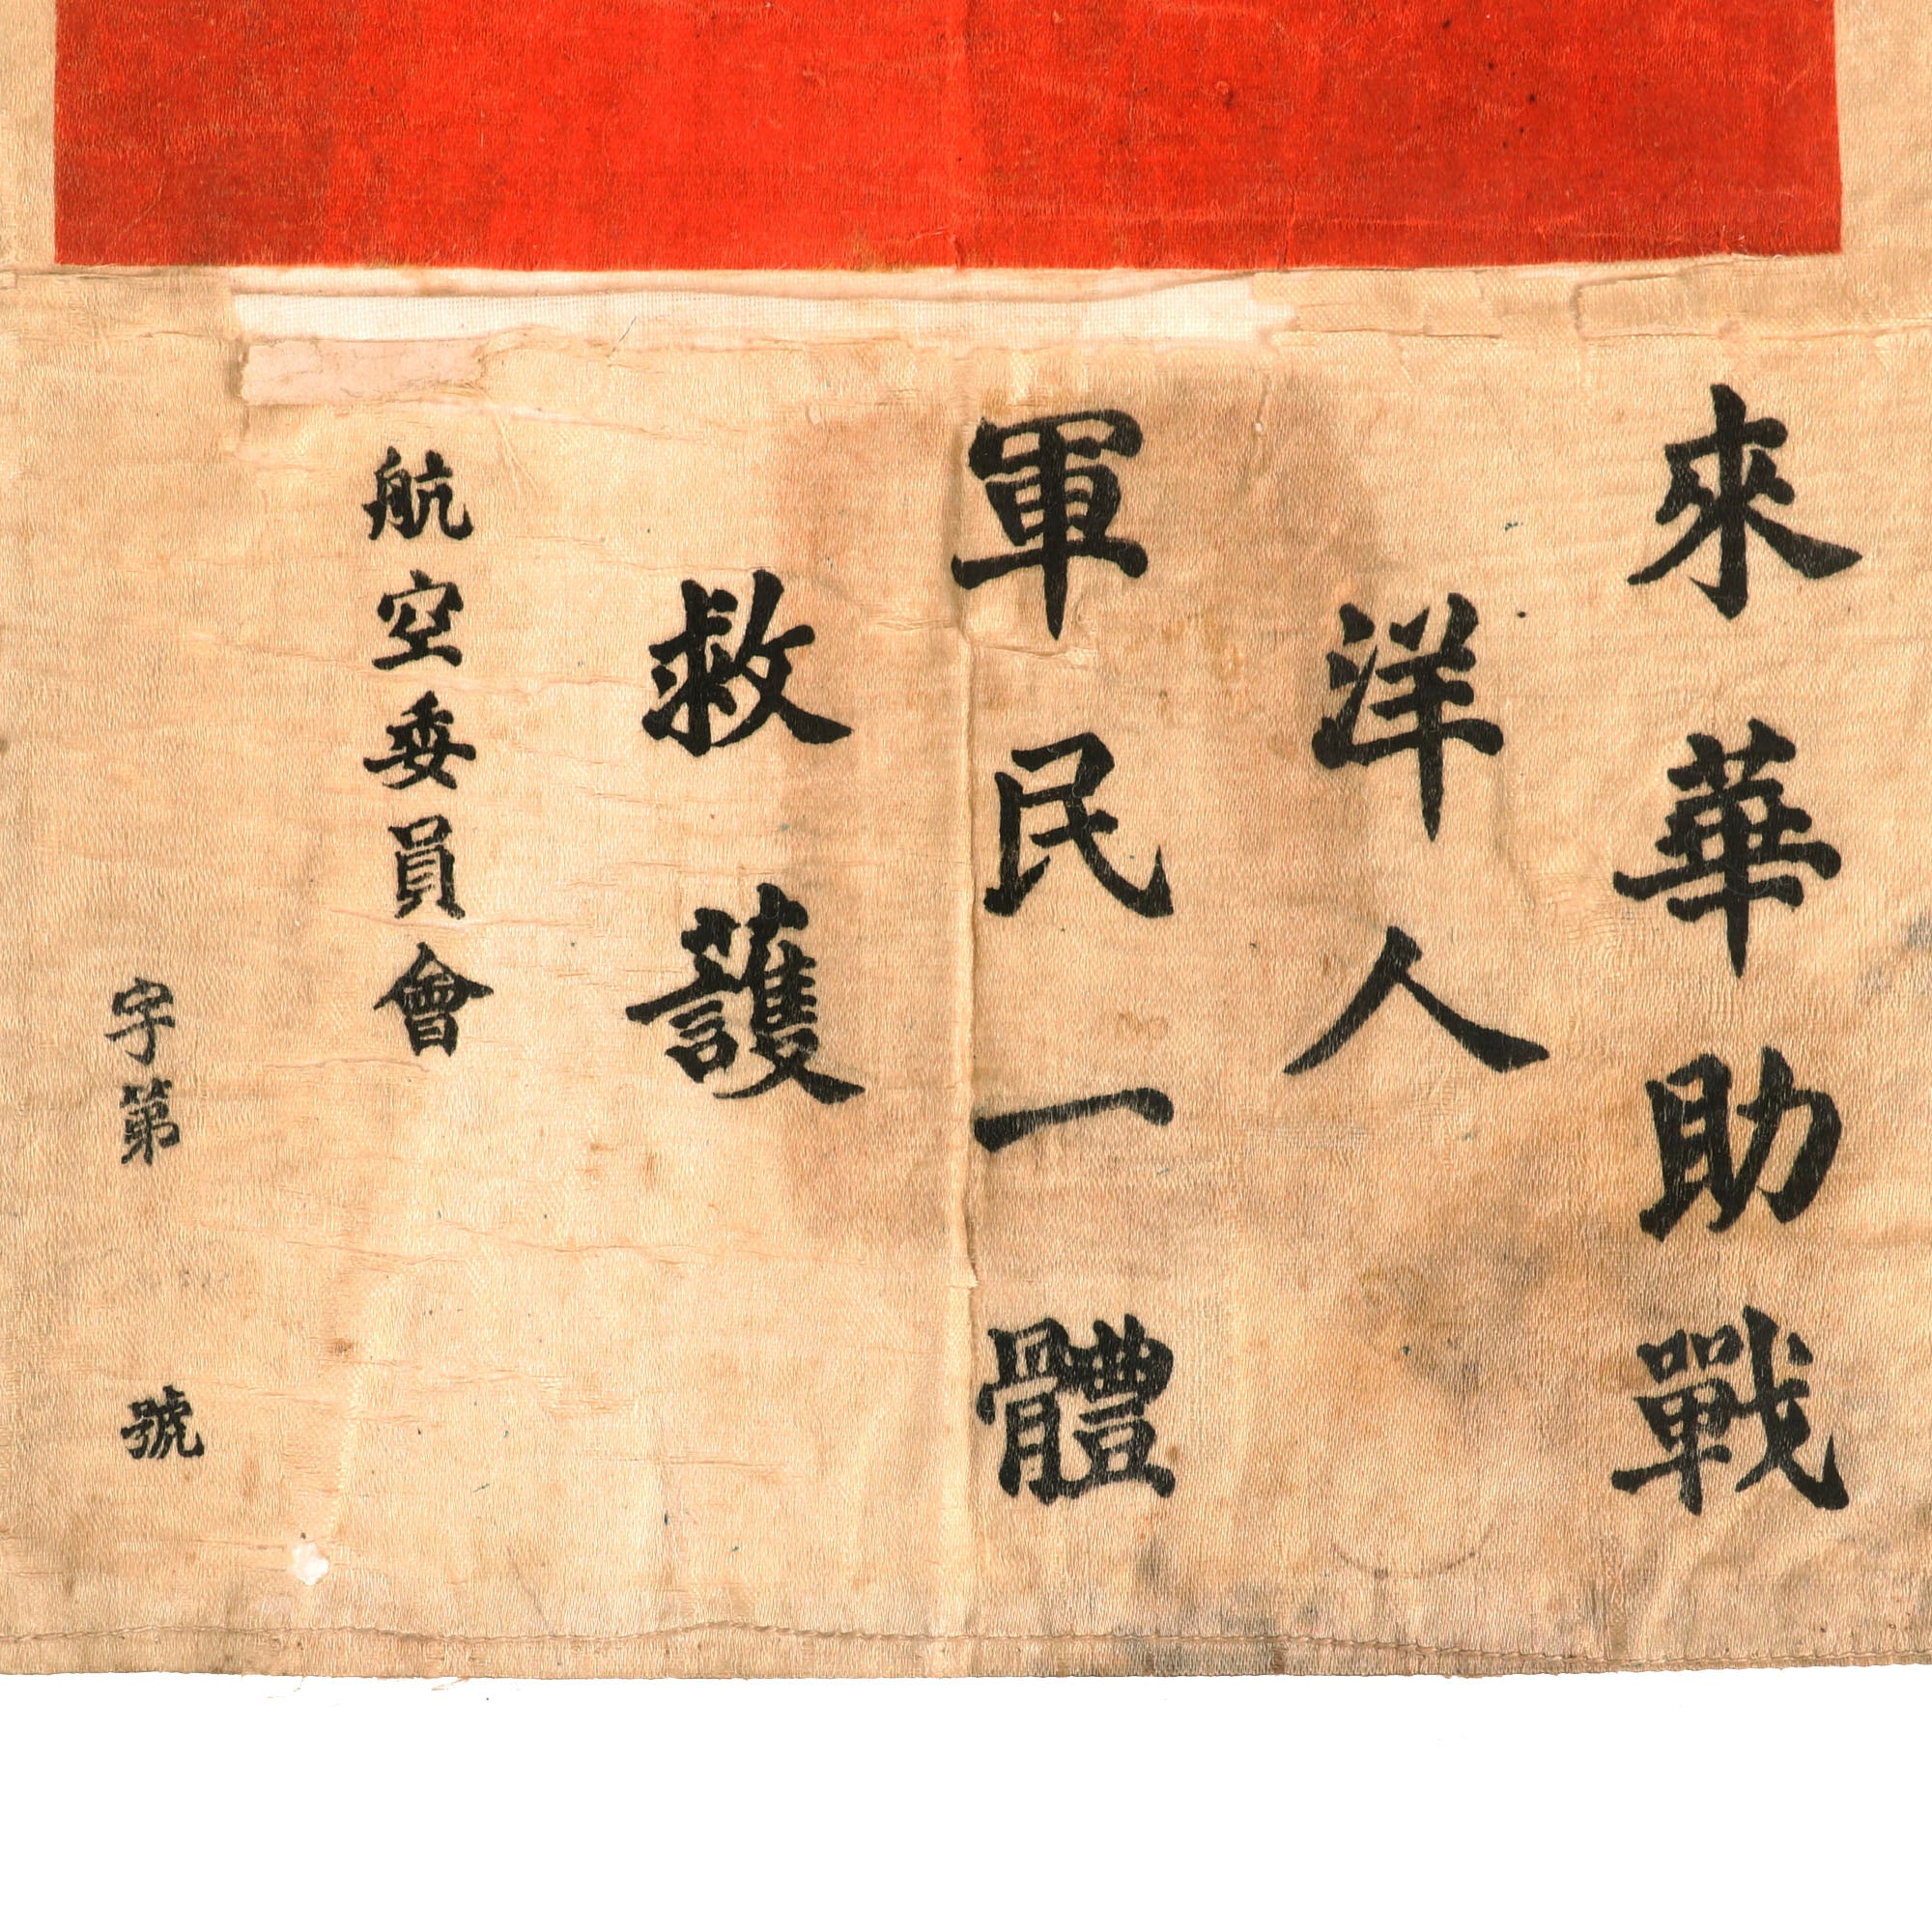 來華助戰
洋人
軍民一體
救護
航空委員會
字第 號